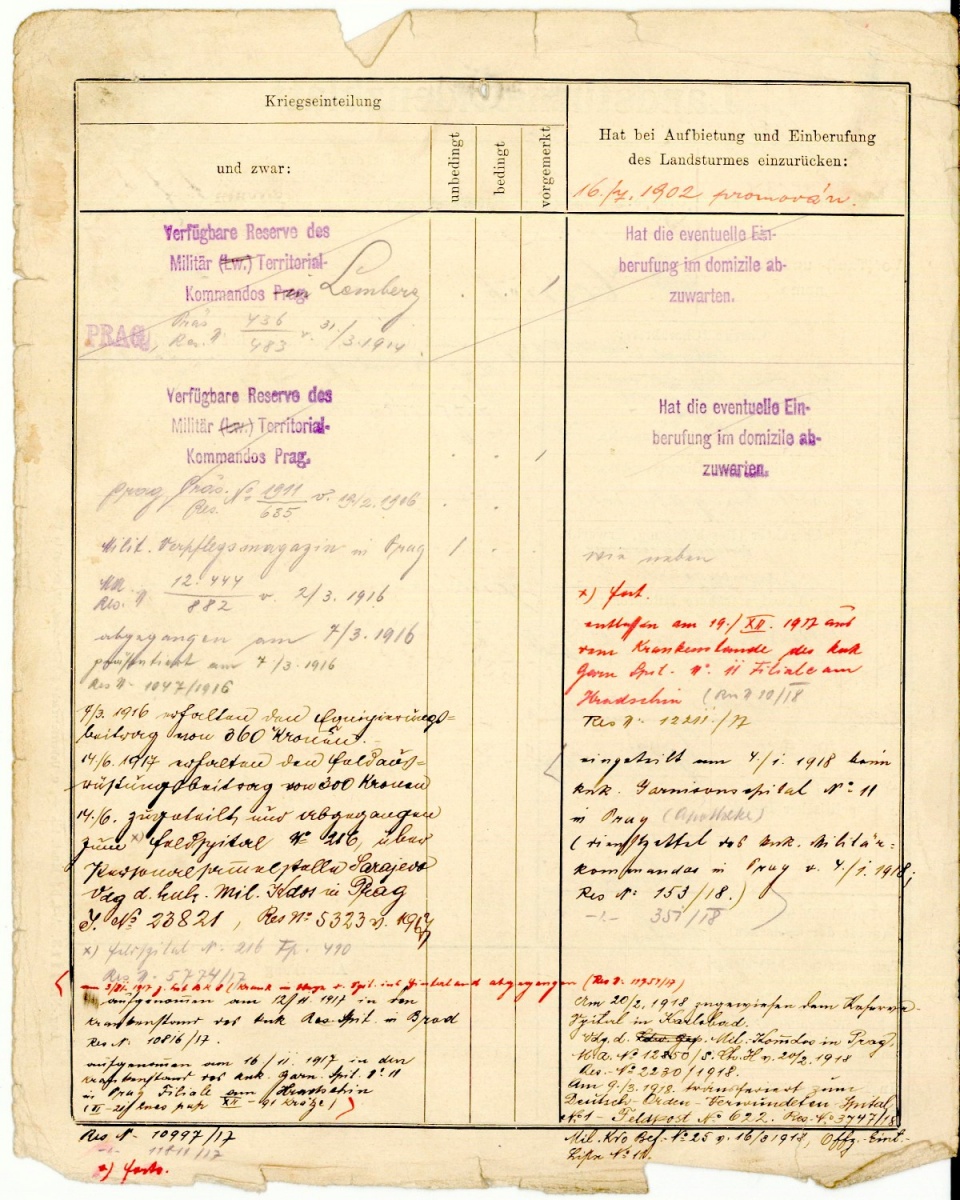 Kriegseinteilung
und zwar:
unbedingt
bedingt
vorgemerkt
Hat bei Aufbietung und Einberufung
des Landsturmes einzurücken:
16./7. 1902 promován.
Verfügbare Reserve des
Militär (Lw.) Territorial-
Kommandos Prag. Lemberg
PRAG, Präs. 436 v. 31./3. 1914
Res. N. 483
Hat die eventuelle Ein-
berufung im domizile ab-
zuwarten.
Verfügbare Reserve des
Militär (Lw.) Territorial-
Kommandos Prag.
Prag Präs. No 1911 v. 19/2. 1916
Res. 685
Hat die eventuelle Ein-
berufung im domizile ab-
zuwarten.
Milit. Verpflegsmagazin in Prag
Res. N. 12.444 v. 2/3. 1916
882
abgegangen am 7/3. 1916
präsentiert am 7/3. 1916
Res N. 1047/1916
7/3. 1916 erhalten den Equipierungs=
beitrag von 360 Kronen.
14./6. 1917 erhalten den Feldaus=
rüstungsbeitrag von 300 Kronen
14./6. zugeteilt und abgegangen
zum x) Feldspital No 216, über
Personalsammelstelle Sarajevo
Vdg d. k.u.k. Mil. Kdos in Prag
J. No 23821, Res No 5323 v. 1917
x) Feldspital N. 216 Fp. 490
Res N. 5774/17
abgegangen (Res N. 11957/17)
aufgenommen am 12/11. 1917 in den
Krankenstand des kuk Res. Spit. in Brod
Res N. 10816/17.
aufgenommen am 16/11. 1917 in den
Krankenstand des kuk. Garn. Spit. No 11
in Prag Filiale am Hradschin
Res N. 10997/17
11411/17
x) forts.
wie neben
x) fort.
entlassen am 19./XII. 1917 aus
dem Krankenstande des kuk
Garn Spit. No. 11 Filiale am
Hradschin
Res N. 12211/17
eingeteilt am 4./1. 1918 beim
kuk. Garnisonsspital No 11
in Prag (Apotheke)
(Dienstzettel des kuk. Militär-
kommandos in Prag v. 4./1. 1918;
Res No 153/18.)
-"- 351/18
Am 20/2. 1918 zugewiesen dem Reserve-
spital in Karlsbad.
Vdg. d. Mil. Komdos in Prag.
M.A. No 12850/S. Ch. H v. 20/2. 1918
Res. No 2230/1918.
Am 9./3. 1918. transferiert zum
Deutsch-Orden-Verwundeten-Spital
No 1 - Feldpost No 622. Res-No 3747/18
Mil. Kdo Bef. No 25 v. 16/3 1918, Offz.-Eint.-
Liste No 12.